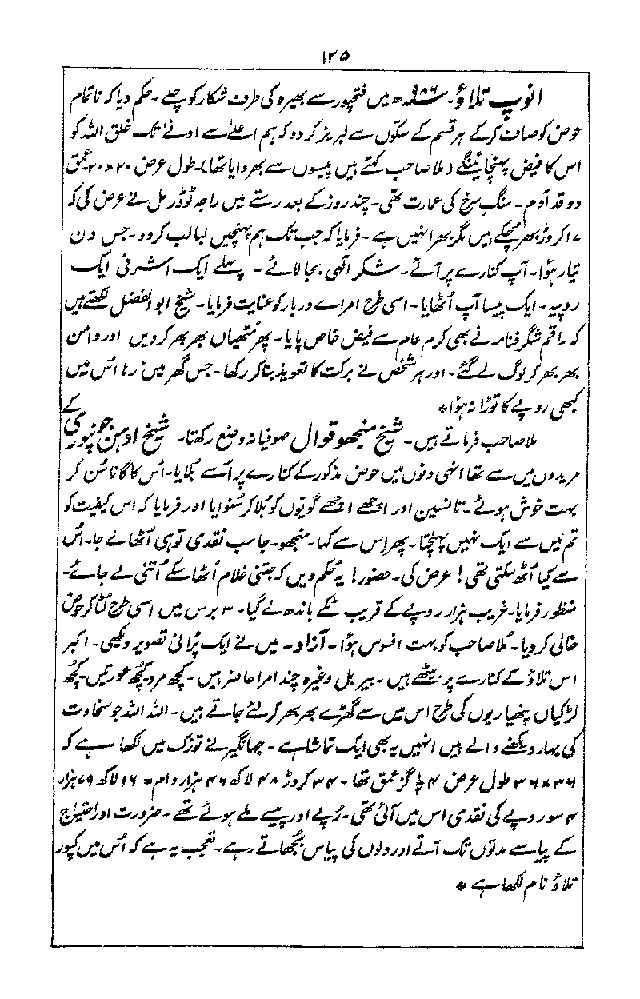 ۱۲۵
انوپ تلاؤ۔ ۹۸۶ھ میں فتحپور سے بھیرہ کی طرف شکار کو چلے۔ حکم دیا کہ تا تمام
حوض کو صاف کرکے ہر قسم کے سکوں سے لبریز کر دو کہ ہم اعلےٰ سے ادنےٰ تک خلق اللہ کو
اس کا فیض پہنچائینگے (ملا صاحب کہتے ہیں پیسوں سے بھروایا تھا)۔ طول عرض ۲۰×۲۰ عمق
دو قد آدم۔ سنگ سرخ کی عمارت تھی۔ چند روز کے بعد رستے میں راجہ ٹوڈر مل نے عرض کی کہ
۱۷ کروڑ بھر چکے ہیں مگر بھرا نہیں ہے۔ فرمایا کہ جب تک ہم پہنچیں لبالب کر دو۔ جس دن
تیار ہوا۔ آپ کنارے پر آئے۔ شکر الٰہی بجا لائے۔ پہلے ایک اشرفی ایک
روپیہ۔ ایک پیسا آپ اُٹھایا۔ اسی طرح امراے دربار کو عنایت فرمایا۔ شیخ ابو الفضل لکھتے ہیں
کہ راقم شگرفنامہ نے بھی کرم عام سے فیض خاص پایا۔ پھر مٹھیاں بھر بھر کر دیں اور دامن
بھر بھر کر لوگ لے گئے۔ اور ہر شخص نے برکت کا تعویذ بنا کر رکھا۔ جس گھر میں رہا اس میں
کبھی روپے کا توڑا نہ ہوا ٭
ملا صاحب فرماتے ہیں۔ شیخ منجھو قوال صوفیانہ وضع رکھتا۔ شیخ ادہن جونپوری کے
مریدوں میں سے تھا انہی دنوں میں حوض مذکور کے کنارے پر اُسے بلایا۔ اُس کا گانا سُن کر
بہت خوش ہوئے۔ تانسین اور اچھے اچھے گویوں کو بلا کر سنوایا اور فرمایا کہ اس کیفیت کو
تم میں سے ایک نہیں پہنچتا۔ پھر اس سے کہا۔ منجھو۔ جا سب نقدی تو ہی اُٹھا لے جا۔ اُس
سے کیا اُٹھ سکتی تھی! عرض کی۔ حضور! یہ حکم دیں کہ جتنی غلام اُٹھا سکے اُتنی لے جائے۔
منظور فرمایا۔ غریب ہزار روپے کے قریب ٹکے باندھ لے گیا۔ ۳ برس میں اسی طرح لٹا کر حوض
خالی کر دیا۔ ملا صاحب کو بہت افسوس ہوا۔ آزاد۔ میں نے ایک پرانی تصویر دیکھی۔ اکبر
اس تلاؤ کے کنارے پر بیٹھے ہیں۔ بیربل وغیرہ چند امرا حاضر ہیں۔ کچھ مرد کچھ عورتیں کچھ
لڑکیاں پنہیاریوں کی طرح اس میں سے گھڑے بھر بھر کر لئے جاتے ہیں۔ اللہ اللہ جو سخاوت
کی بہار دیکھنے والے ہیں انہیں یہ بھی ایک تماشا ہے۔ جہانگیر نے توزک میں لکھا ہے کہ
۳۶×۳۶ طول عرض ۴½ گز عمق تھا۔ ۳۴ کروڑ ۴۸ لاکھ ۴۶ ہزار دام۔ ۱۶ لاکھ ۷۹ ہزار
۴ سو روپے کی نقدی اس میں آئی تھی۔ رُپے اور پیسے ملے ہوئے تھے۔ ضرورت اور احتیاج
کے پیاسے مدتوں تک آتے اور دلوں کی پیاس بُجھاتے رہے۔ تعجب یہ ہے کہ اُس میں کپور
تلاؤ نام لکھا ہے ٭